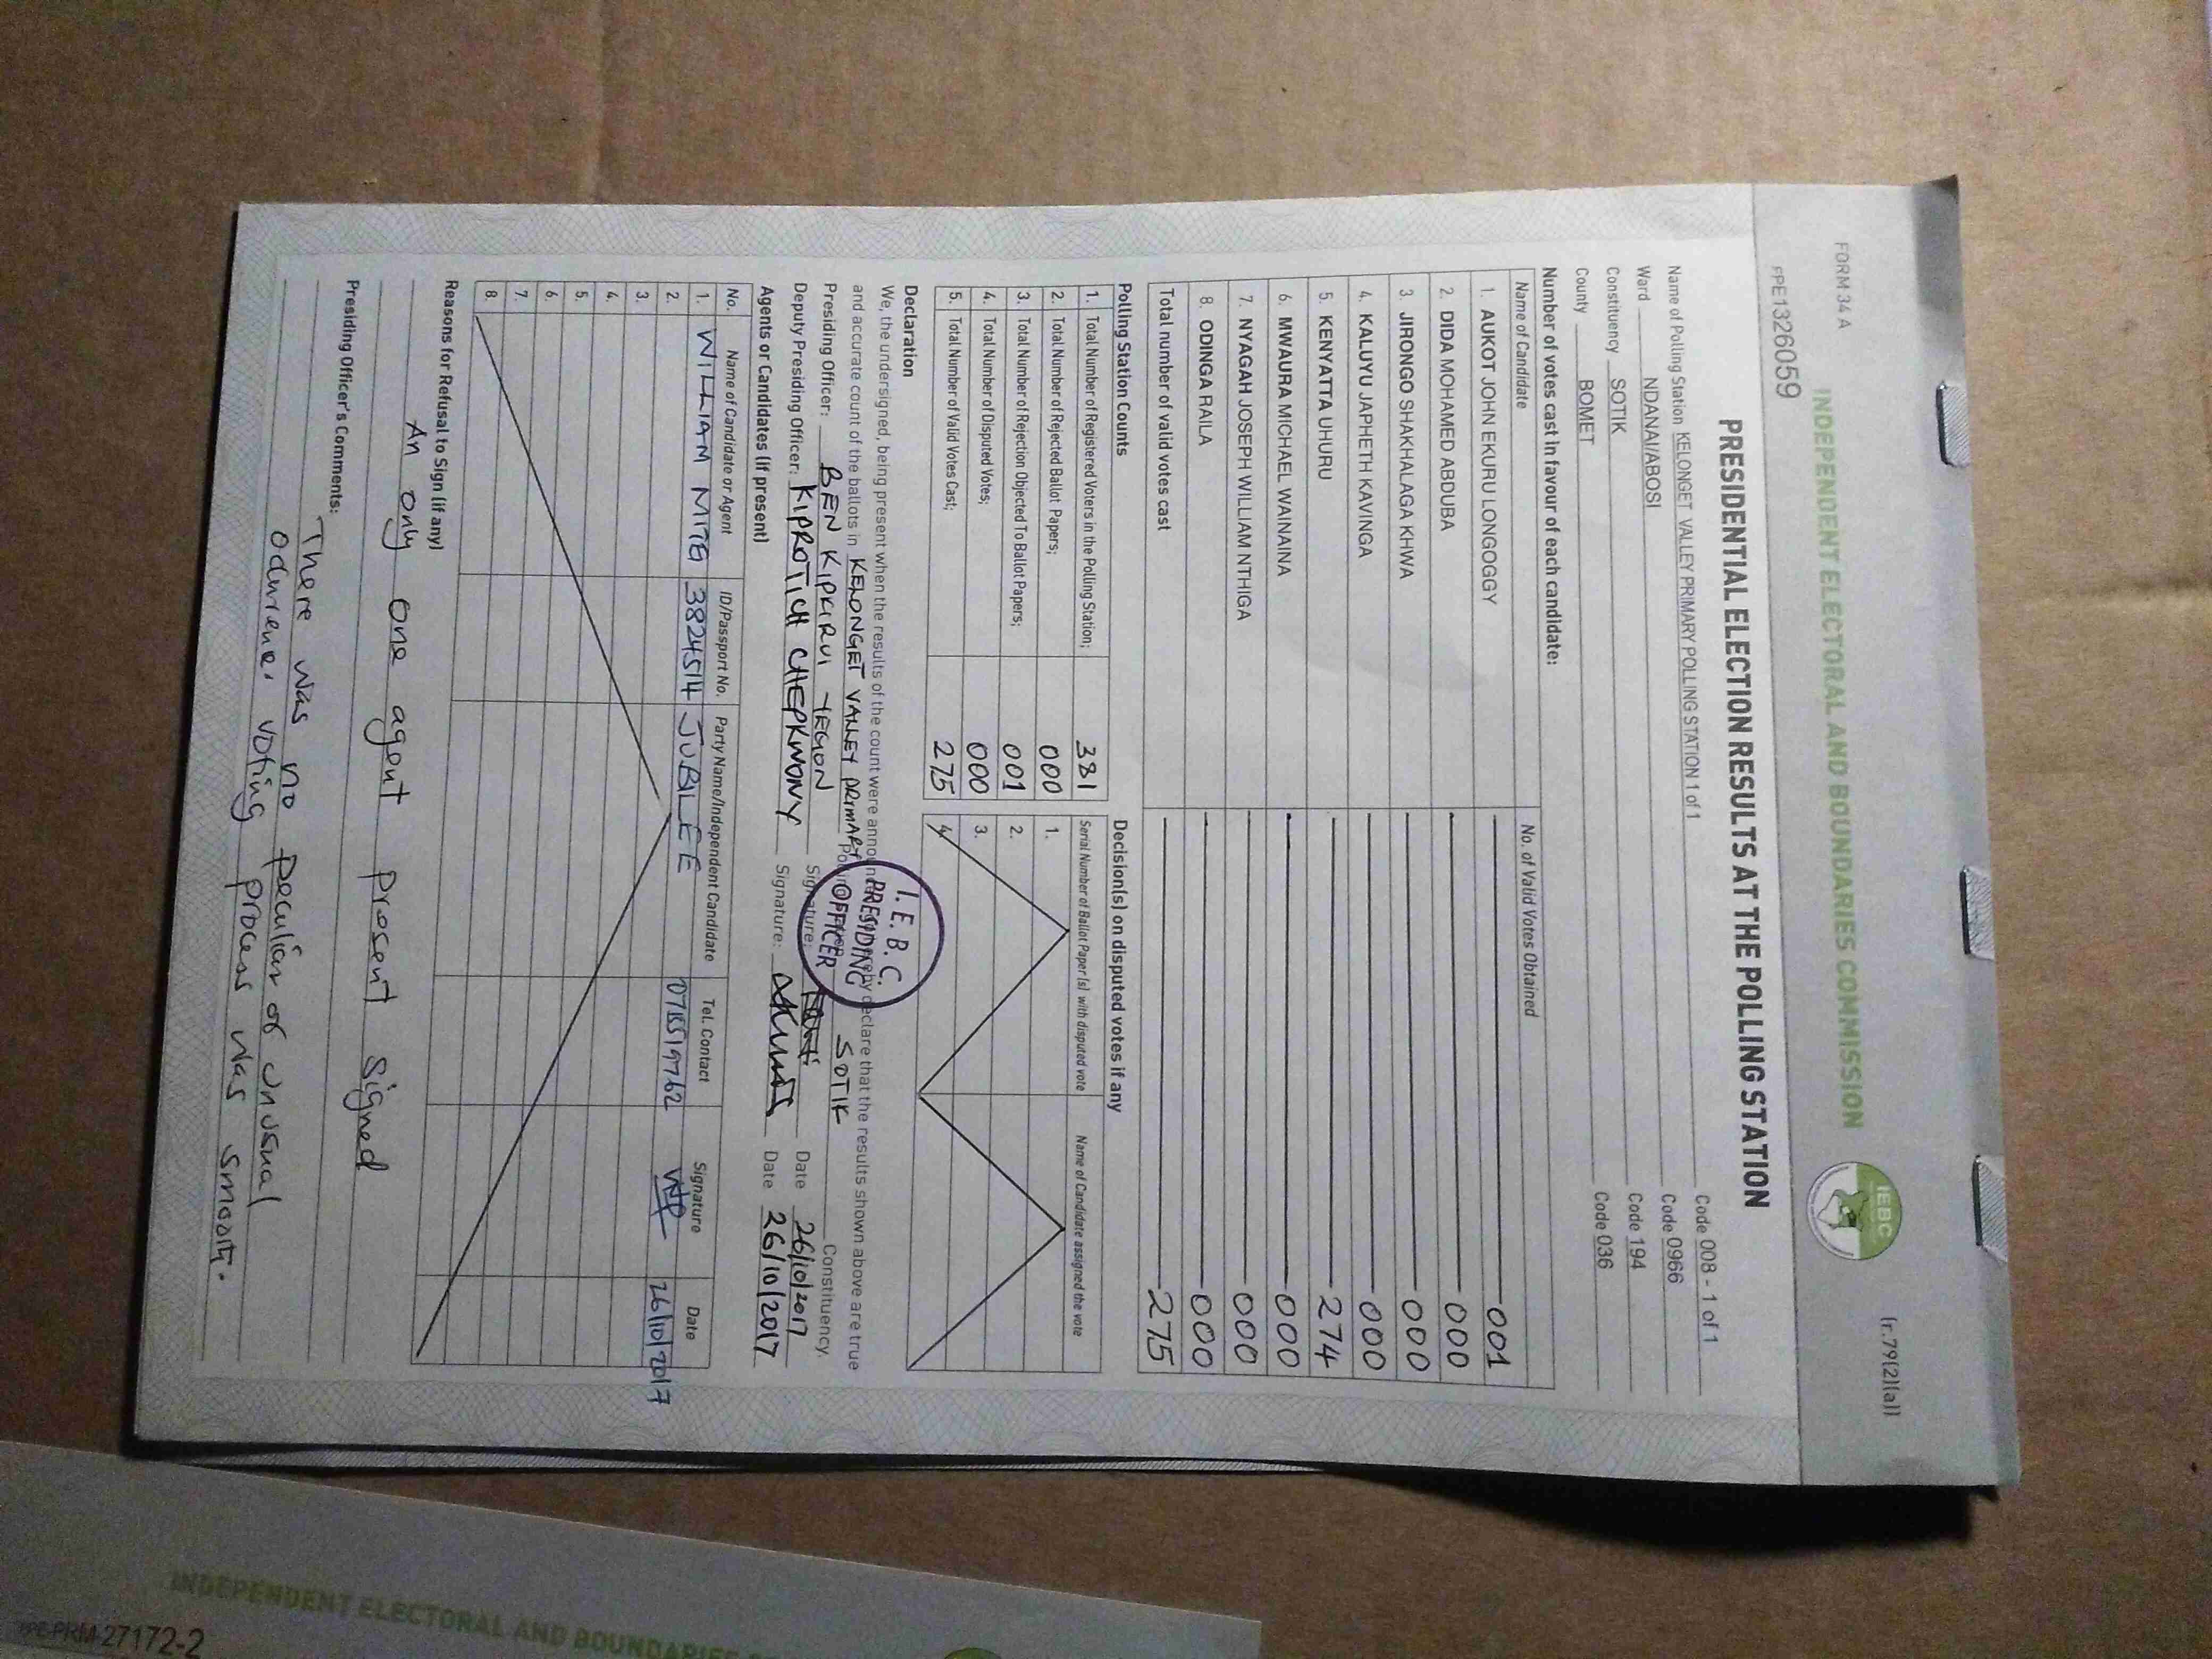 FORM 34 A
(r.79(2)(a))
INDEPENDENT ELECTORAL AND BOUNDARIES COMMISSION
IEBC
PPE1326059
PRESIDENTIAL ELECTION RESULTS AT THE POLLING STATION
Name of Polling Station KELONGET VALLEY PRIMARY POLLING STATION 1 of 1 Code 008 - 1 of 1
Ward NDANAI/ABOSI Code 0966
Constituency SOTIK Code 194
County BOMET Code 036
Number of votes cast in favour of each candidate:
Name of Candidate No. of Valid Votes Obtained
1. AUKOT JOHN EKURU LONGOGGY 001
2. DIDA MOHAMED ABDUBA 000
3. JIRONGO SHAKHALAGA KHWA 000
4. KALUYU JAPHETH KAVINGA 000
5. KENYATTA UHURU 274
6. MWAURA MICHAEL WAINAINA 000
7. NYAGAH JOSEPH WILLIAM NTHIGA 000
8. ODINGA RAILA 000
Total number of valid votes cast 275
Polling Station Counts Decision(s) on disputed votes if any
1. Total Number of Registered Voters in the Polling Station; 381
2. Total Number of Rejected Ballot Papers; 000
3. Total Number of Rejection Objected To Ballot Papers; 001
4. Total Number of Disputed Votes; 000
5. Total Number of Valid Votes Cast; 275
Serial Number of Ballot Paper(s) with disputed vote Name of Candidate assigned the vote
1.
2.
3.
4.
Declaration
We, the undersigned, being present when the results of the count were announced declare that the results shown above are true
and accurate count of the ballots in KELONGET VALLEY PRIMARY SOTIK Constituency.
Presiding Officer: BEN KIPKIRUI YEGON Signature: Date 26/10/2017
Deputy Presiding Officer: KIPROTICH CHEPKWONY Signature: Date 26/10/2017
I.E.B.C.
PRESIDING
OFFICER
Agents or Candidates (if present)
No. Name of Candidate or Agent ID/Passport No. Party Name/Independent Candidate Tel. Contact Signature Date
1. WILLIAM 3824514 JUBILEE 26/10/2017
2.
3.
4.
5.
6.
7.
8.
Reasons for Refusal to Sign (if any)
An only one agent present signed
Presiding Officer's Comments:
There was no peculiar or unusual
ocurrence. voting process was smooth.
INDEPENDENT ELECTORAL AND BOUNDARIES
PPE-PRM-27172-2